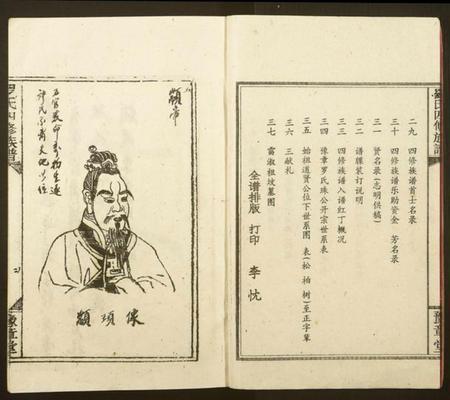 羅氏四修族譜
二九 四修族谱首士名录
三十 四修族谱乐助资金 芳名录
三一 贤名录(志明供稿)
三二 谱牒装订说明
三三 四修族谱入谱红丁概况
三四 豫章罗氏珠公开宗世系表
三五 始祖道贤公位下世系图 表(松 柏 树)至正字辈
三六 三献礼
三七 富淑祖坟墓图
全谱排版 打印 李忱
豫章堂
罗氏四修族譜
豫章堂
顓帝
像頊顓